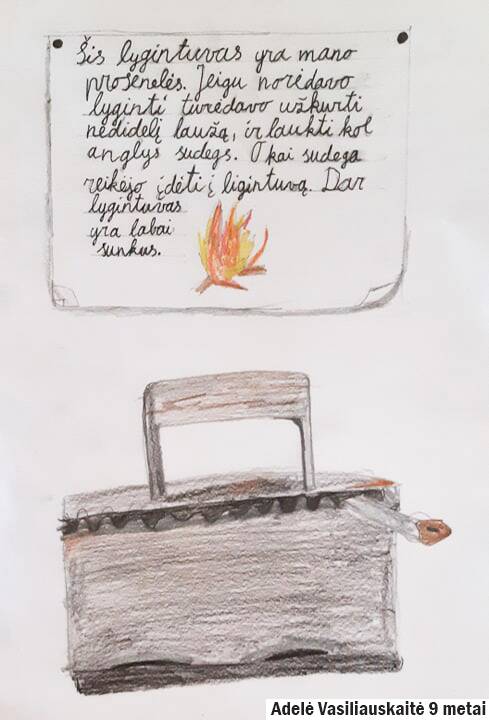 Šis lygintuvas yra mano
prosenelės. Jeigu norėdavo
lyginti turėdavo užkurti
nedidelį laužą, ir laukti kol
anglys sudegs. O kai sudega
reikėjo įdėti į ligintuvą. Dar
lygintuvas
yra labai
sunkus.
Adelė Vasiliauskaitė 9 metai